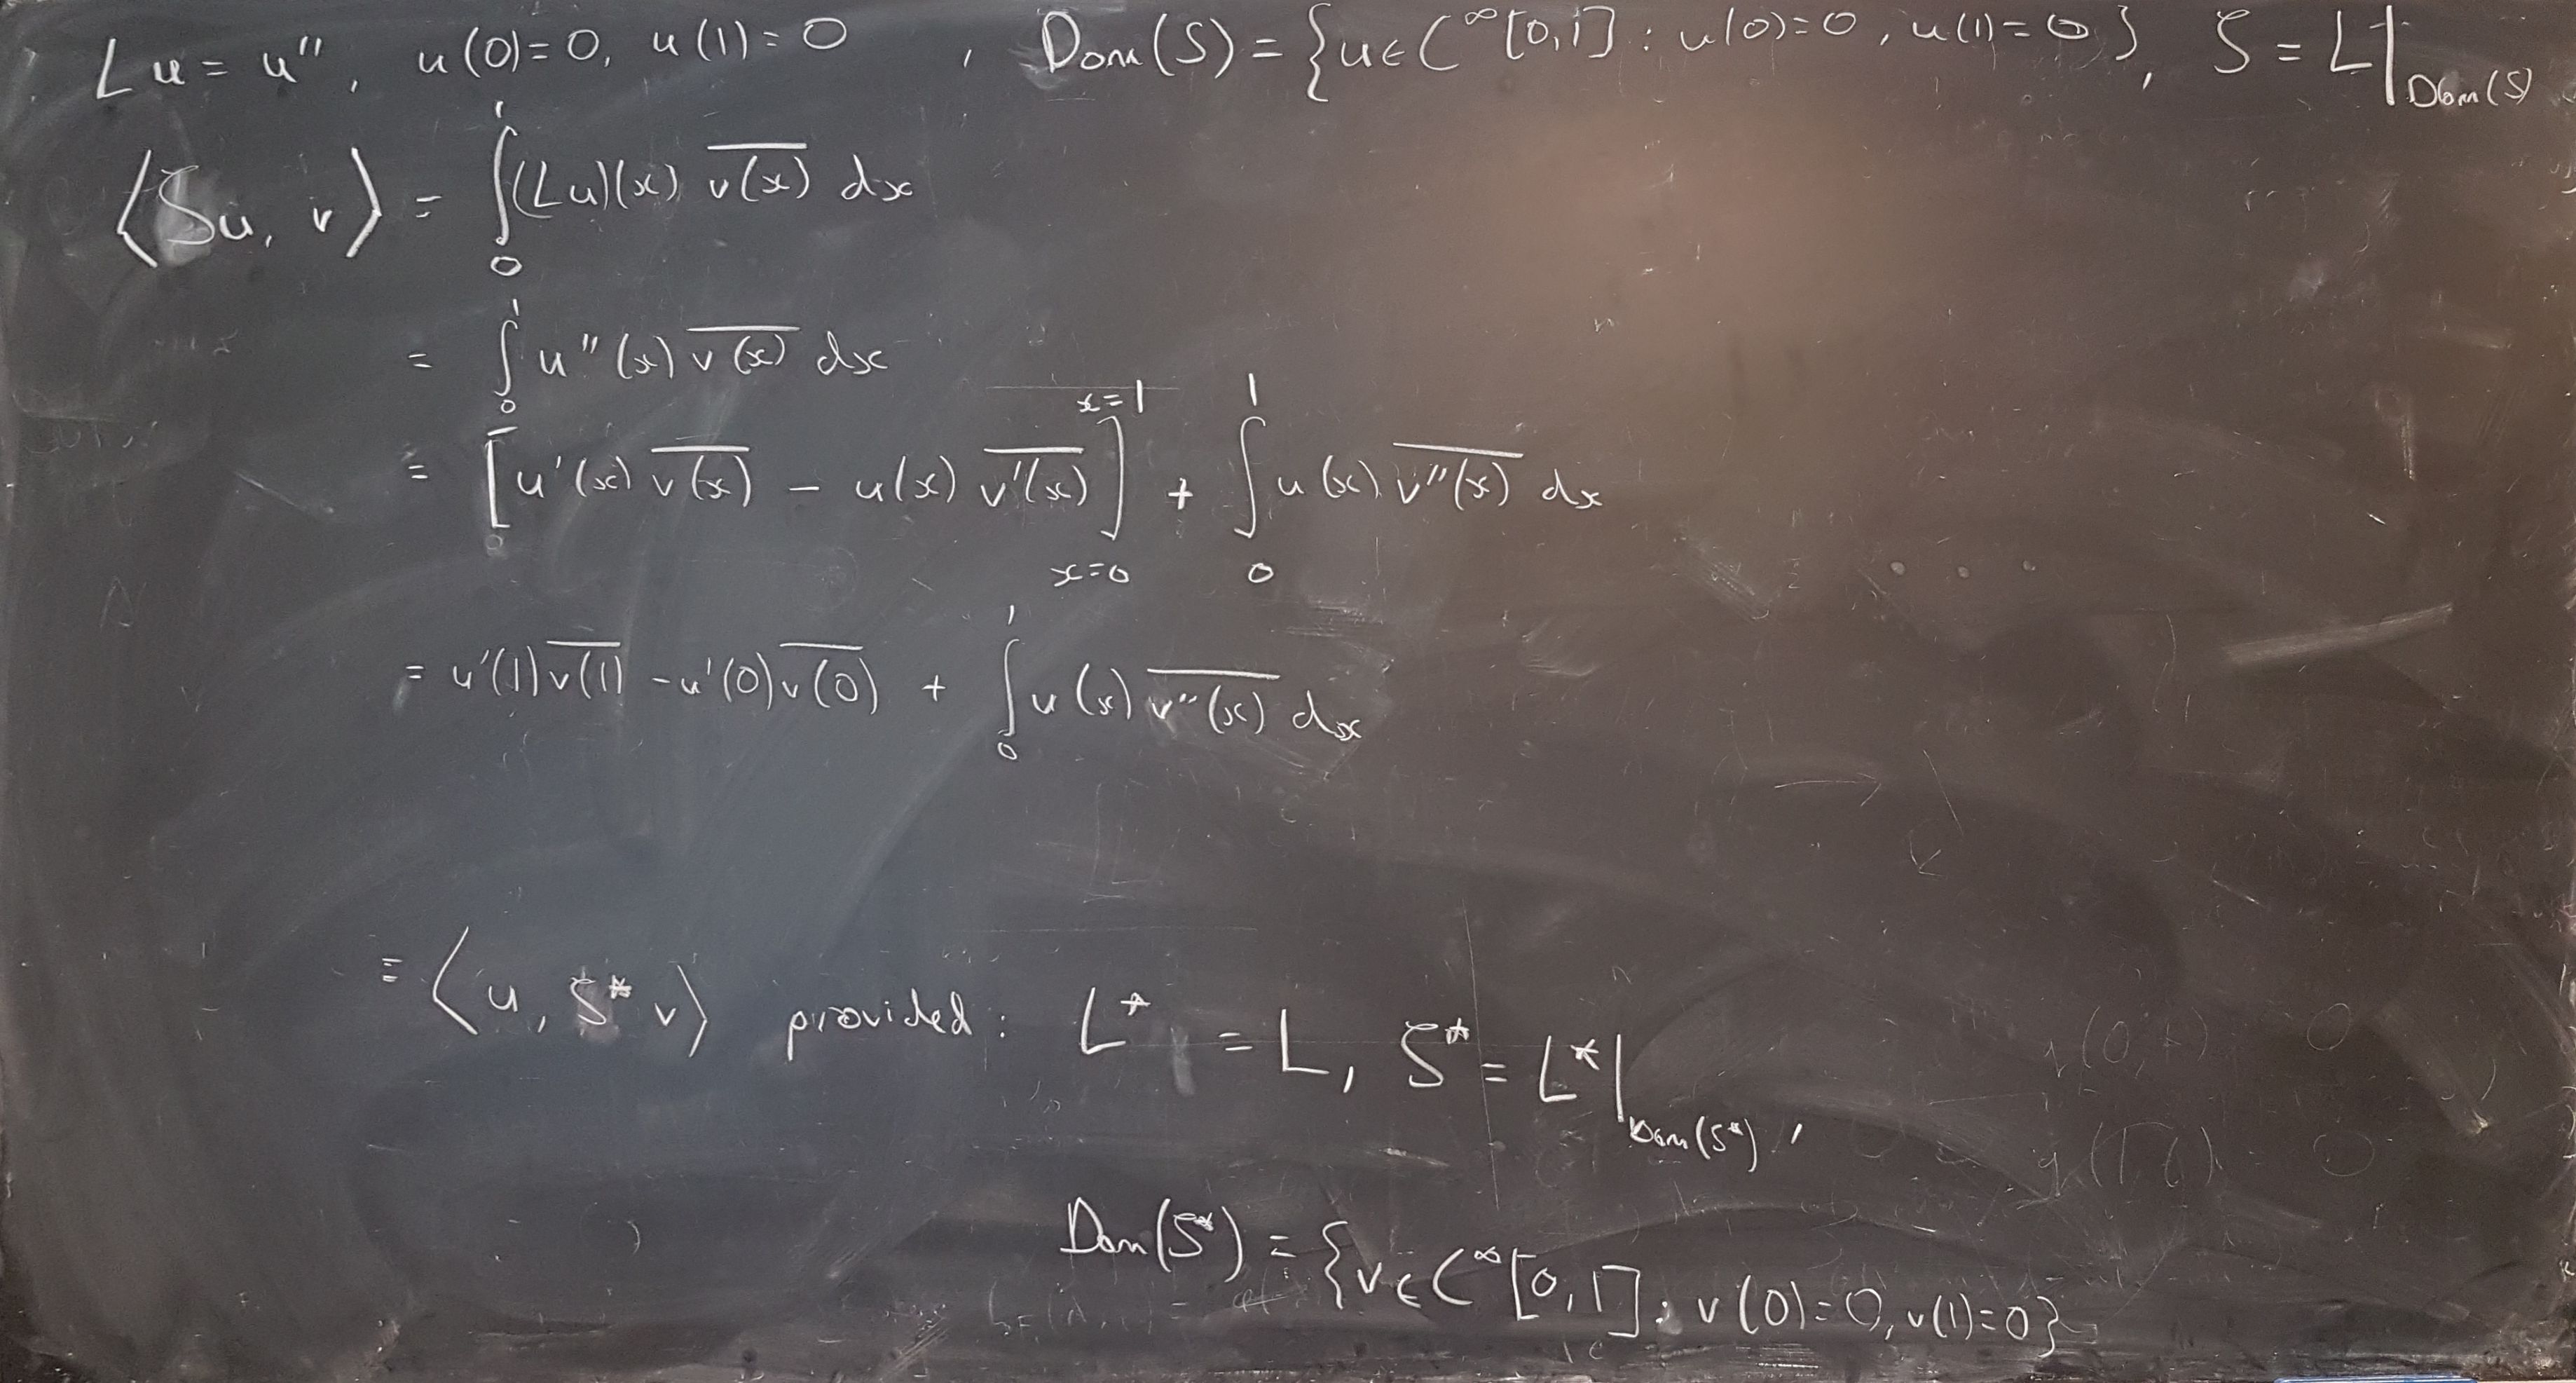 Lu = u'', u(0)=0, u(1)=0, Dom(S) = {u∈C^∞[0,1] : u(0)=0, u(1)=0}, S = L|_{Dom(S)}
⟨Su, v⟩ = ∫_0^1 (Lu)(x) \overline{v(x)} dx
= ∫_0^1 u''(x) \overline{v(x)} dx
= [u'(x) \overline{v(x)} - u(x) \overline{v'(x)}]_{x=0}^{x=1} + ∫_0^1 u(x) \overline{v''(x)} dx
= u'(1) \overline{v(1)} - u'(0) \overline{v(0)} + ∫_0^1 u(x) \overline{v''(x)} dx
= ⟨u, S* v⟩ provided: L* = L, S* = L*|_{Dom(S*)},
Dom(S*) = {v∈C^∞[0,1] : v(0)=0, v(1)=0}